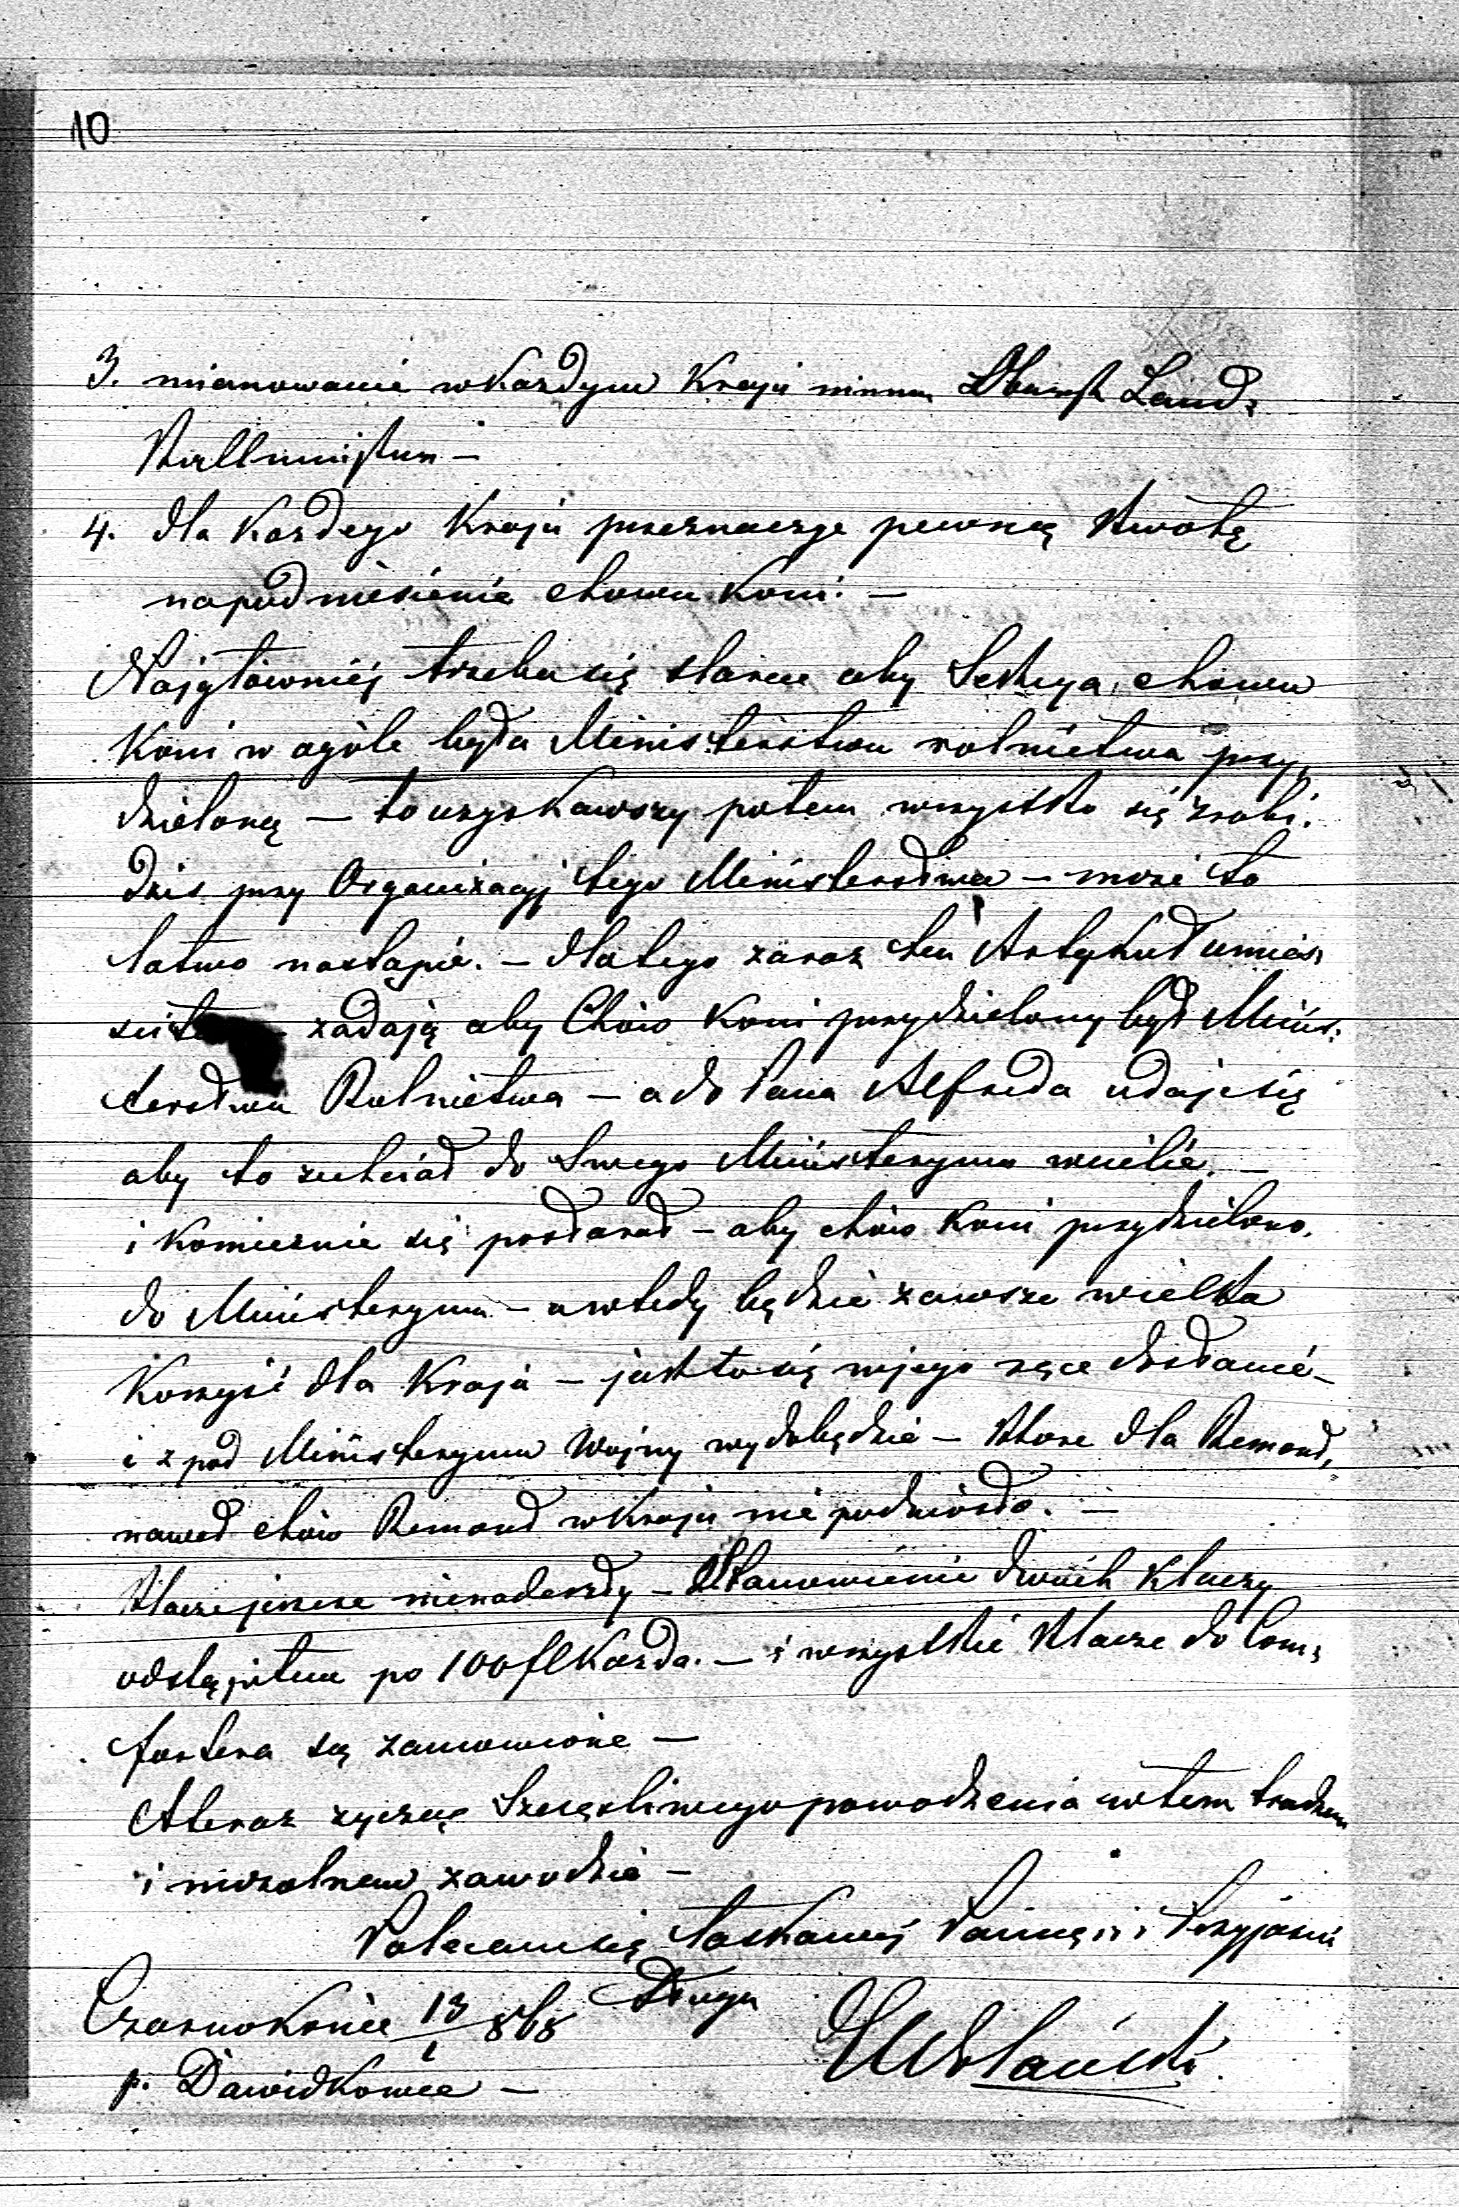 10
3. mianowanie w każdym Kraju Land=
Stallmeistern —
4. dla każdego Kraju przeznaczyć pewną Kwotę
na podniesienie chowu Koni. —
Najgłówniéj trzeba się starać aby Sekcya chowu
Koni w ogóle była Ministerstwu rolnictwa przy=
dzieloną — to uzyskawszy potem wszystko się zrobi.
Dziś przy Organizacyj tego Ministerstwa — może to
łatwo nastąpić. — Dlatego zaraz ten Artykuł umieś=
żadają aby Chów Koni przydzielony był Minis=
terstwu Rolnictwa — a do Pana Alfreda udaje się
aby to zechciał do Swego Ministeryum wcielić. —
i koniecznie się postarał — aby chów Koni przydzielono.
do Ministeryum — a wtedy będzie zawsze wielka
Korzyść dla Kraju — jak to się w jego ręce dostanie —
i z pod Ministeryum Wojny wydobędzie — które dla Remont,
nawet chów Remont w Kraju nie podniosło. —
Klacze jeszcze nienadeszły — Stanowienie dwóch Klaczy
odstąpiłem po 100 fl Każda. — i wszystkie Klacze do Com=
fortera są zamówione —
A teraz życzę Szczęśliwego powodzenia w tem trudnem
i mozolnem zawodzie —
Polecam się łaskawéj Pamięci i Przyjaźni
Sługa
Czarnokońce 13/1 868
p. Dawidkowce —
Wolański